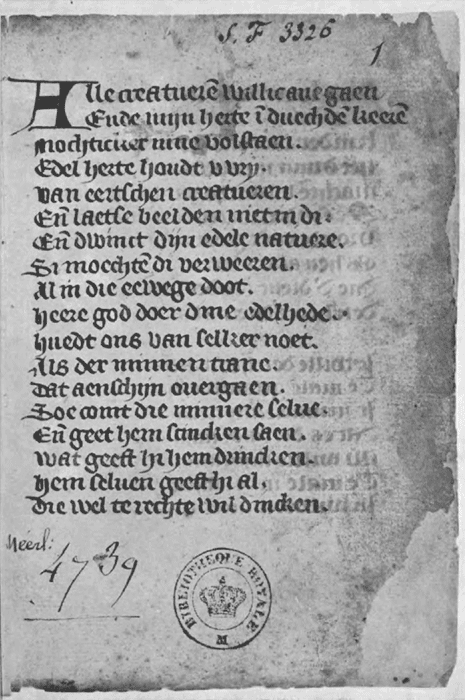 S. F 3326
1
Alle creatuerē willic aue gaen
Ende mijn herte ī duechdē keerē
Mochticker mine volstaen.
Edel herte houdt v vrij.
van eertschen creatueren.
Eñ laetse beelden niet in di.
Eñ dwinct dijn edele natuere.
Si moechtē di verweeren.
Al in die eewege doot.
heere god doer dine edelhede.
huedt ons van selker noet.
Als der minnen trane.
Dat aenschijn ouergaen.
Soe comt die minnere selue.
Eñ geet hem scincken saen.
wat geeft hi hem drincken.
hem seluen geeft hi al.
Die wel te rechte wil dincken.
Meerl:
4739
BIBLIOTHEQUE ROYALE
M